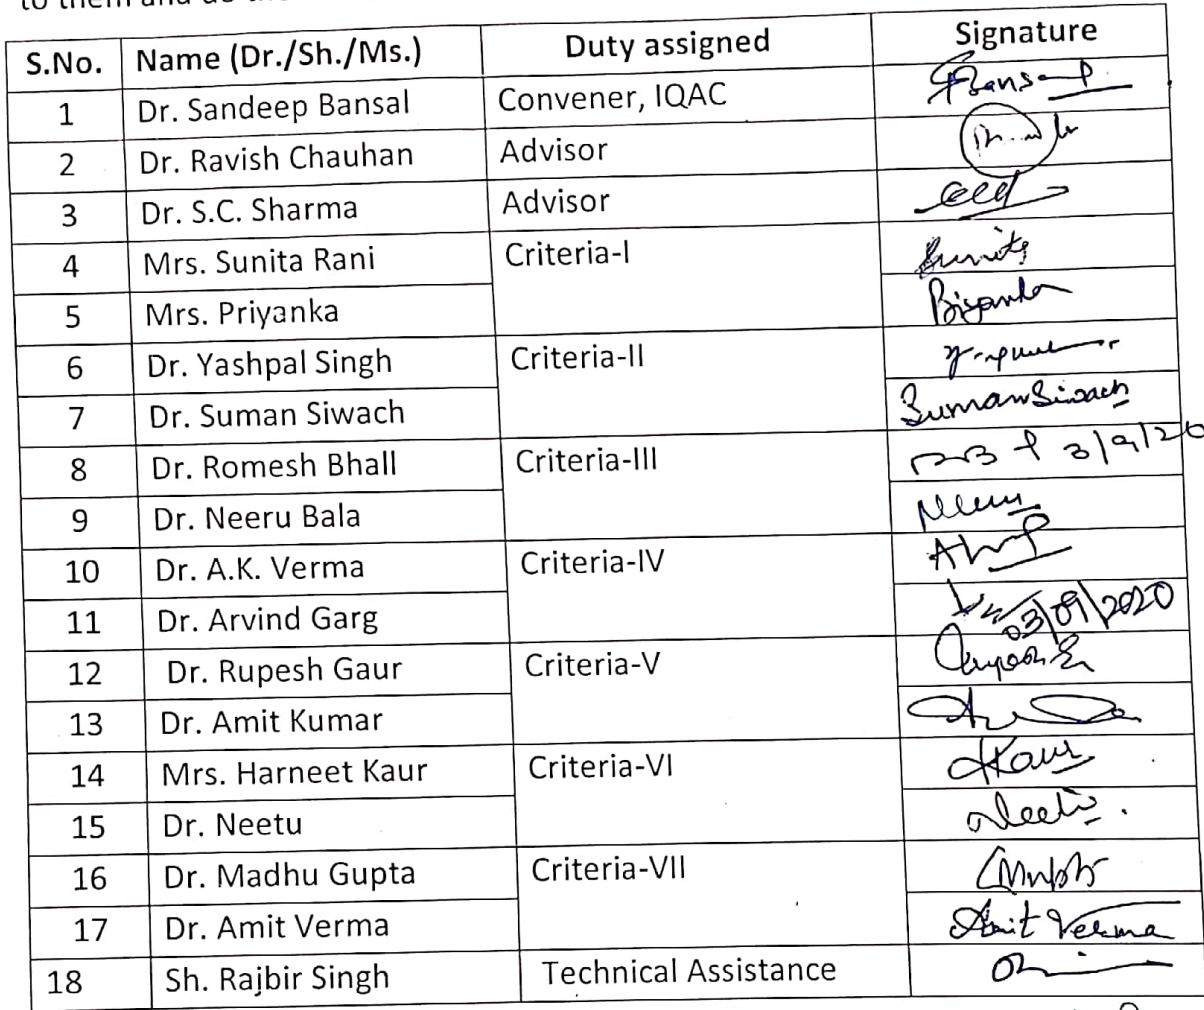 to them and do the
S.No. Name (Dr./Sh./Ms.) Duty assigned Signature
1 Dr. Sandeep Bansal Convener, IQAC
2 Dr. Ravish Chauhan Advisor
3 Dr. S.C. Sharma Advisor
4 Mrs. Sunita Rani Criteria-I
5 Mrs. Priyanka
6 Dr. Yashpal Singh Criteria-II
7 Dr. Suman Siwach Suman Siwach
8 Dr. Romesh Bhall Criteria-III 3/9/20
9 Dr. Neeru Bala
10 Dr. A.K. Verma Criteria-IV
11 Dr. Arvind Garg 03/09/2020
12 Dr. Rupesh Gaur Criteria-V
13 Dr. Amit Kumar
14 Mrs. Harneet Kaur Criteria-VI HKaur
15 Dr. Neetu Neetu.
16 Dr. Madhu Gupta Criteria-VII
17 Dr. Amit Verma Amit Verma
18 Sh. Rajbir Singh Technical Assistance